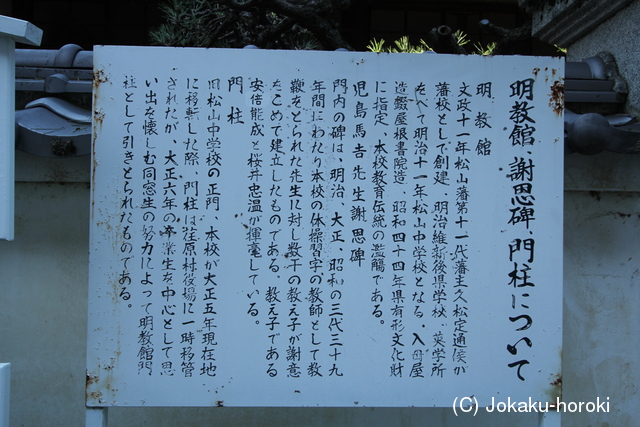 明教館、謝恩碑、門柱について
明教館
文政十一年松山藩第十一代藩主久松定通侯が
藩校として創建、明治維新後県学校、英学所
をへて明治十一年松山中学校となる、入母屋
造錣屋根書院造、昭和四十四年県有形文化財
に指定、本校教育伝統の濫觴である。
児島馬吉先生謝恩碑
門内の碑は、明治、大正、昭和の三代三十九
年間にわたり本校の体操習字の教師として教
鞭をとられた先生に対し数千の教え子が謝意
をこめて建立したものである、教え子である
安倍能成と桜井忠温が揮毫している。
門柱
旧松山中学校の正門、本校が大正五年現在地
に移転した際、門柱は荏原村役場に一時移管
されたが、大正六年の卒業生を中心として思
い出を懐しむ同窓生の努力によって明教館門
柱として引きとられたものである。
(C) Jokaku-horoki